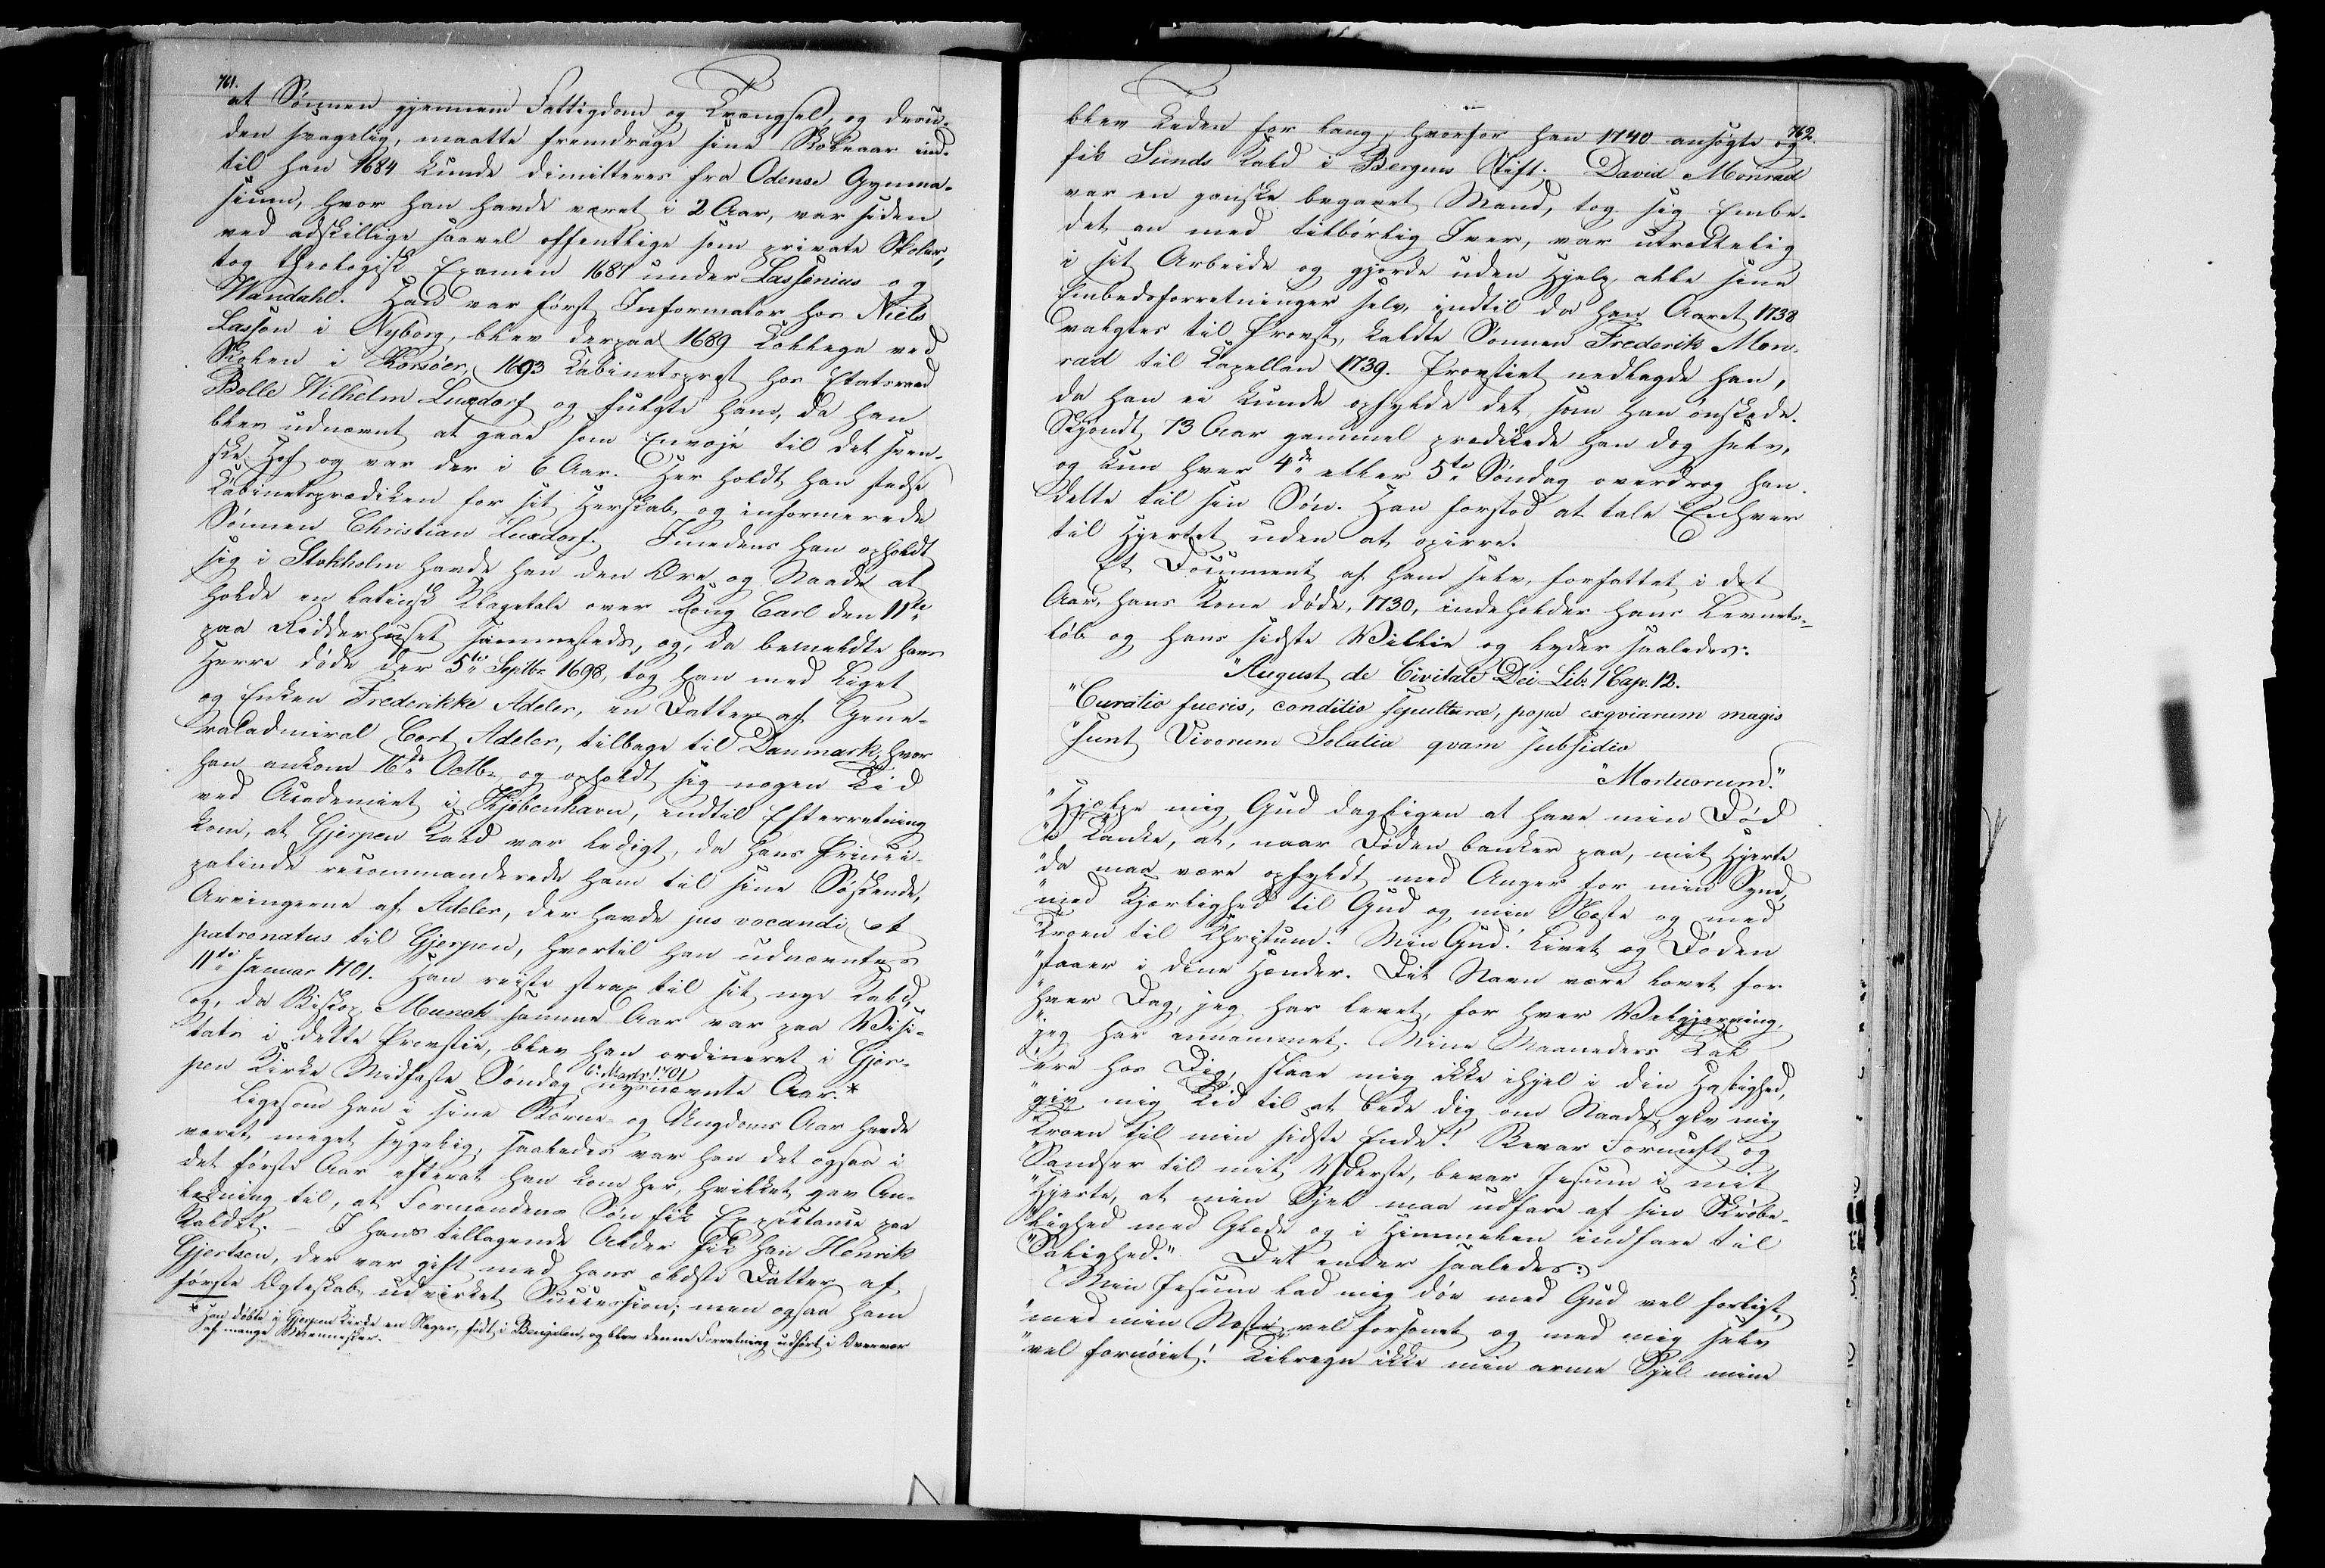 761.
at Sønnen gjennem Fattigdom og Trængsel, og desu-
den svagelig, maatte fremdrage sine Skoleaar ind-
til han 1684 kunde dimitteres fra Odense Gymna-
sium, hvor han havde været i 2 Aar, var siden
ved adskillige saavel offentlige som private Skoler,
tog theologisk Examen 1687 under Lassenius og
Wandahl. Han var først Informator hos Niels
Lasson i Nyborg, blev derpaa 1689 Collega ved
Skolen i Korsöer, 1693 Cabinetspræst hos Etatsraad
Bolle Wilhelm Luxdorf og fulgte ham, da han
blev udnævnt at gaae som Envojé til det sven-
ske Hof og var der i 6 Aar. Her holdt han stedse
Cabinetsprædiken for sit Herskab og informerede
Sønnen Christian Luxdorf. Imedens han opholdt
sig i Stokholm havde han den Ære og Naade at
holde en latinsk Klagetale over Kong Carl den 11te
paa Ridderhuset sammesteds, og, da bemeldte hans
Herre døde der 5te Septbr 1698, tog han med Liget
og Enken Frederikke Adeler, en Datter af Gene-
raladmiral Cort Adeler, tilbage til Danmark, hvor
han ankom 16de Octbr og opholdt sig nogen Tid
ved Academiet i Kjøbenhavn, indtil Efterretning
kom, at Gjerpen Kald var ledigt, da hans Princi-
palinde recommanderede ham til sine Søskende,
Arvingerne af Adeler, der havde jus vocandi et
patronatus til Gjerpen, hvortil han udnævntes
11te Januar 1701. Han reiste strax til sit nye Kald,
og, da Biskop Munch samme Aar var paa Visi-
tats i dette Provstie, blev han ordineret i Gjer-
pen Kirke Midfaste Søndag nysnævnte Aar.*
6: Marts 1701
Ligesom han i sine Børne- og Ungdoms Aar havde
været meget sygelig, saaledes var han det ogsaa i
det første Aar efterat han kom her, hvilket gav An-
ledning til, at Formandens Søn fik Exspectance paa
Kaldet. - I hans tiltagende Alder fik han Henrik
Gjertsen, der var gift med hans ældste Datter af
første Ægteskab, udvirket Succession; men ogsaa ham
* Han døbte i Gjerpen Kirke en Neger, født i Bengalen, og blev denne Forretning udført i Overvær
af mange Mennesker.
762.
blev Tiden for lang, hvorfor han 1740 ansøgte og
fik Sunds Kald i Bergens Stift. David Monrad
var en ganske begavet Mand, tog sig Embe-
det an med tilbørlig Iver, var utrættelig
i sit Arbeide og gjorde uden Hjelp alle sine
Embedsforretninger selv, indtil da han Aaret 1738
valgtes til Provst, kaldte Sønnen Frederik Mon-
rad til Capellan 1739. Provstiet nedlagde han,
da han ei kunde opfylde det, som han ønskede.
Skjøndt 73 Aar gammel prædikede han dog selv,
og kun hver 4de eller 5te Søndag overdrog han
dette til sin Søn. Han forstod at tale Enhver
til Hjertet uden at opirre.
Et Document af ham selv, forfattet i det
Aar, hans Kone døde, 1730, indeholder hans Levnets-
løb og hans sidste Villie og lyder saaledes:
"August de Civitate Dei Lib: 1 Cap. 12.
"Curatio fueris, conditio sepulturæ, popa exqviarum magis
"sunt Vivorum Solatia qvam subsidia
"Mortuorum."
"Hjelpe mig Gud dagligen at have min Død
"i Tanke, at, naar Døden banker paa, mit Hjerte
"da maa være opfyldt med Anger for min Synd,
"med Kjærlighed til Gud og min Næste og med
"Troen til Christum. Min Gud! Livet og Døden
"staaer i dine Hænder. Dit Navn være lovet for
"hver Dag, jeg har levet, for hver Velgjerning,
"jeg har annammet. Mine Maaneders Tal
"ere hos Dig, staae mig ikke ihjel i din Hastighed,
"giv mig Tid til at bede dig om Naade, giv mig
"Troen til min sidste Ende! Bevar Fornuft og
"Sandser til mit Yderste, bevar Jesum i mit
"Hjerte, at min Sjel maa udfare af sin Skrøbe-
"lighed med Glæde og i Himmelen indfare til
"Salighed." Det ender saaledes:
"Min Jesum lad mig döe med Gud vel forligt,
"med min Næste vel forsonet og med mig selv
"vel fornøiet! Tilregn ikke min arme Sjel mine